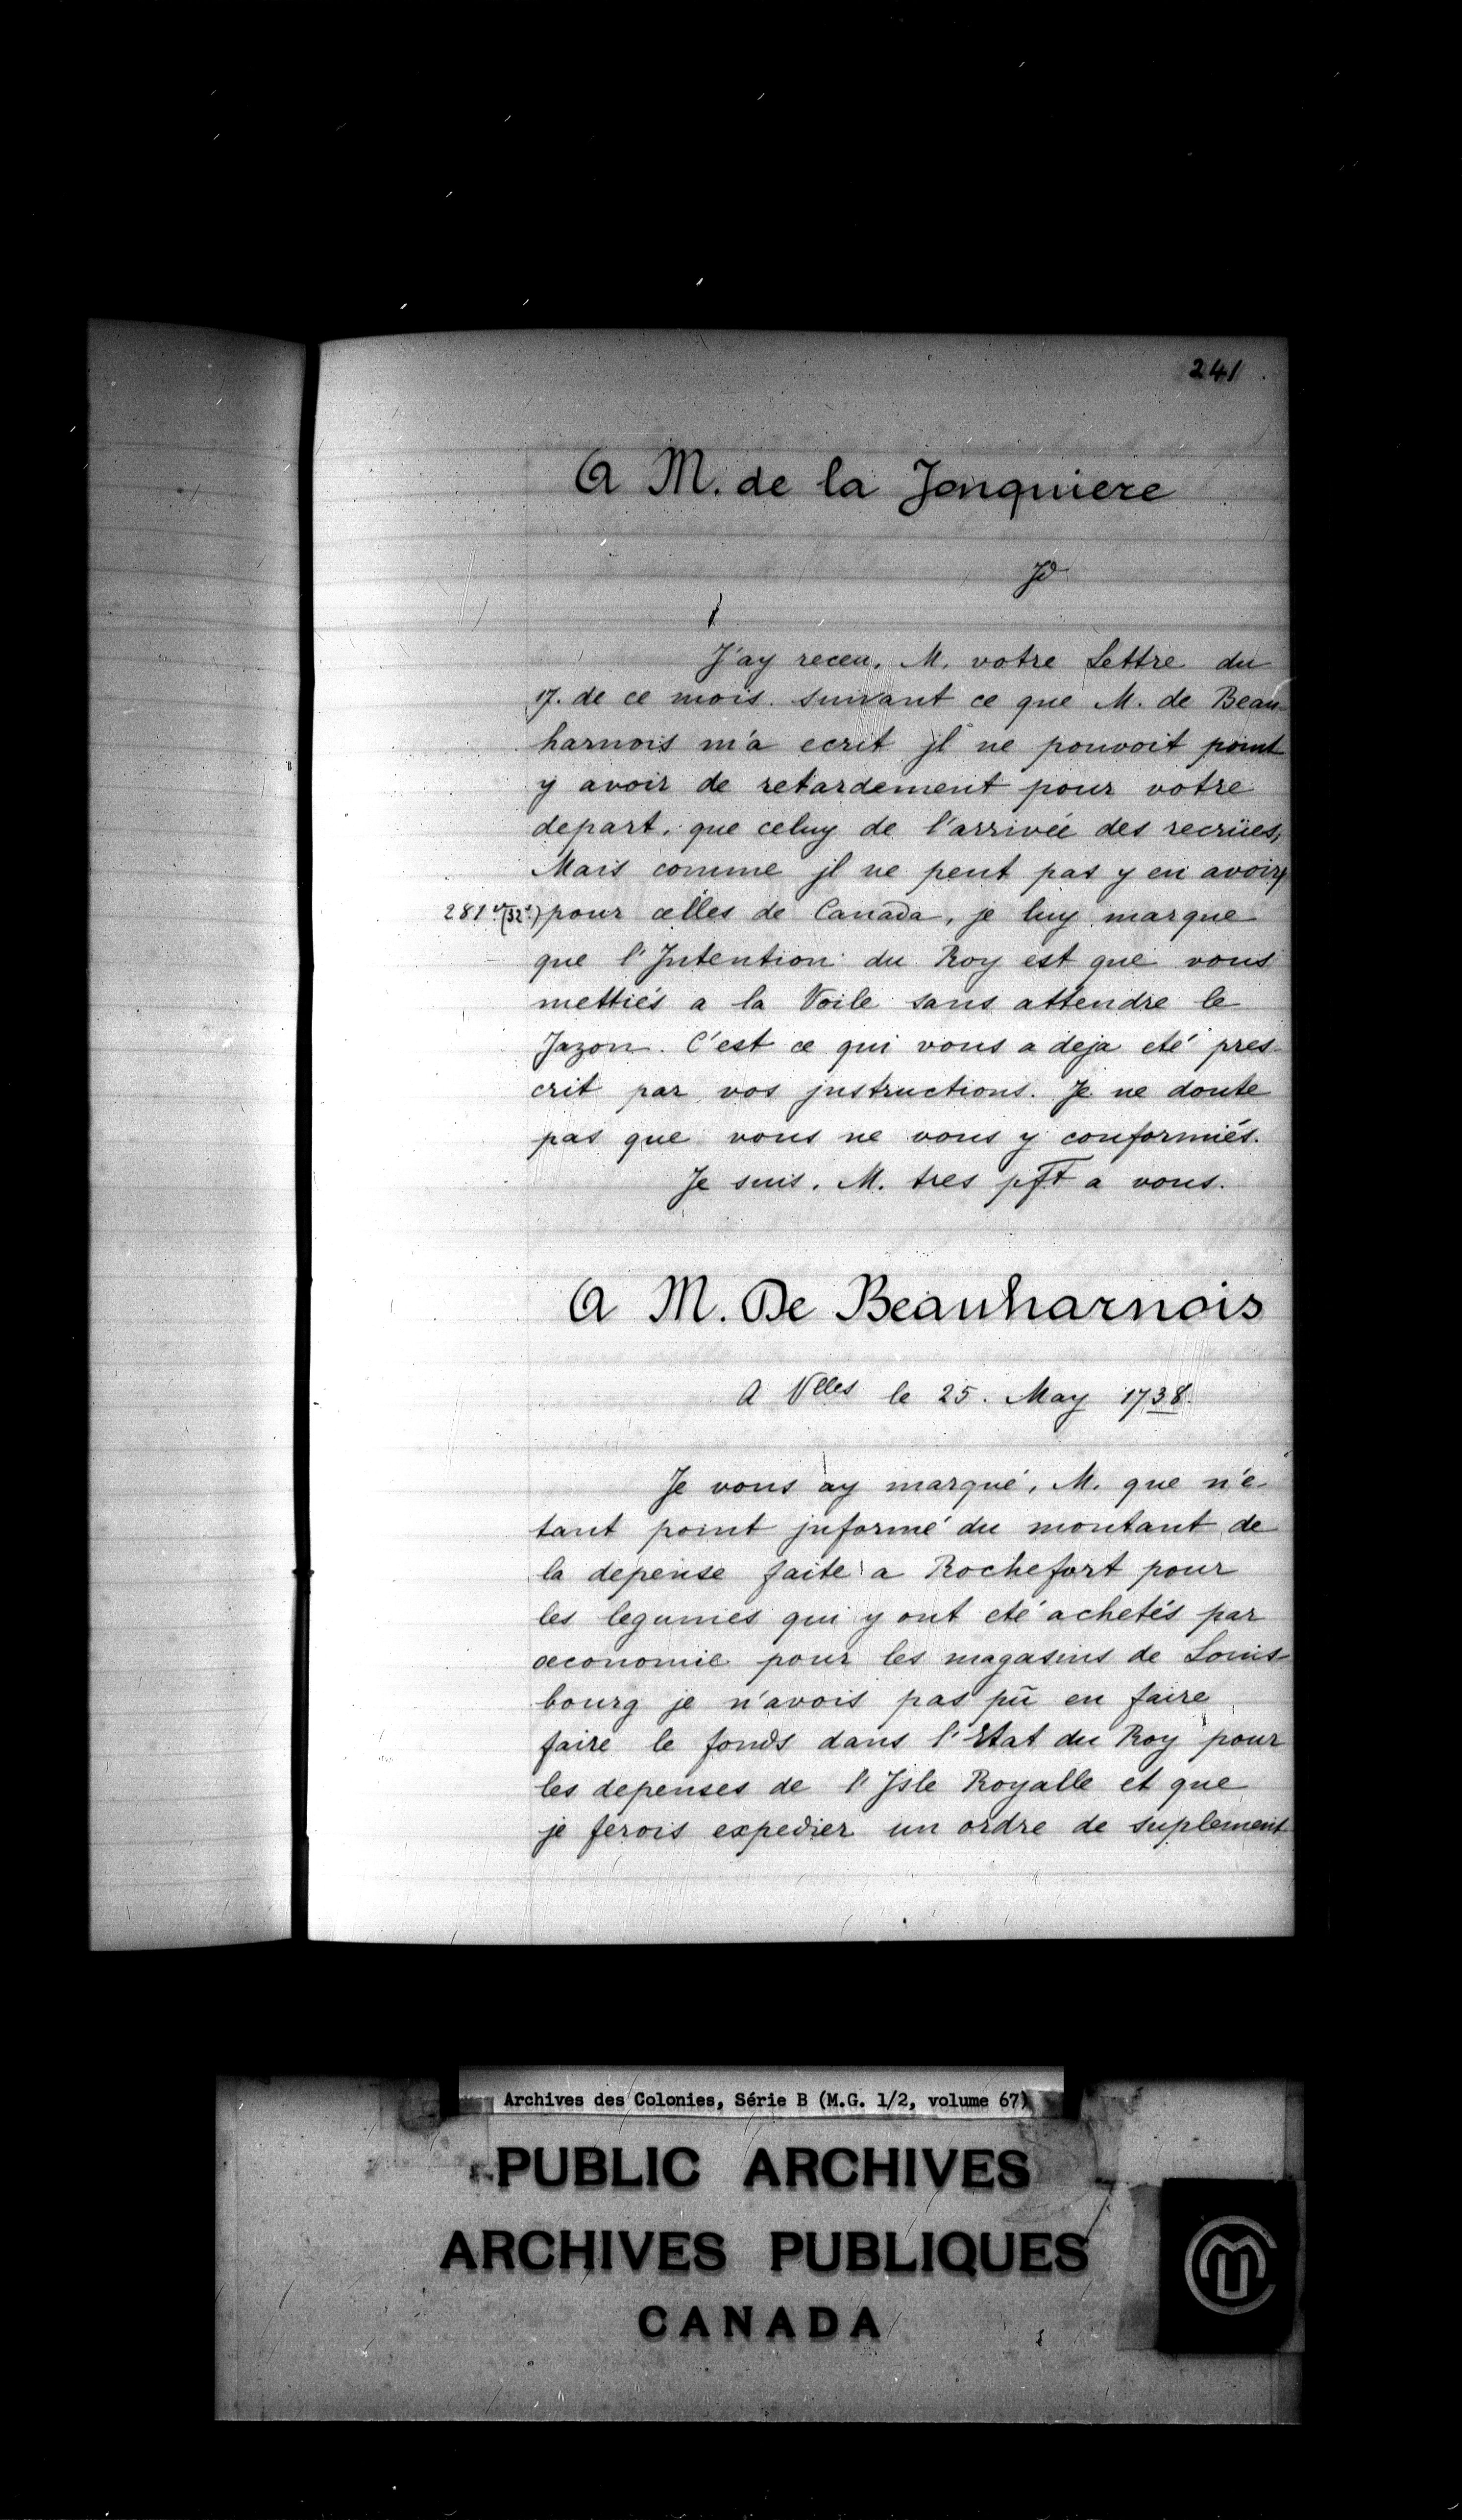 241
A M. de la Jonquiere
Jd
J'ay receu, M. votre Lettre du
17. de ce mois. suivant ce que M. de Beau-
harnois m'a ecrit jl ne pouvoit point
y avoir de retardement pour votre
depart, que celuy de l'arrivée des recrües,
Mais comme jl ne peut pas y en avoir
281 vº (32º) pour celles de Canada, je luy marque
que l'Jntention du Roy est que vous
mettiés a la Voile sans attendre le
Jazon. C'est ce qui vous a deja eté pres-
crit par vos jnstructions. Je ne doute
pas que vous ne vous y conformiés.
Je suis. M. tres pft a vous.
A M. De Beauharnois
A Vlles le 25. May 1738.
Je vous ay marqué, M. que n'e-
tant point jnformé du montant de
la depense faite a Rochefort pour
les legumes qui y ont eté achetés par
œconomie pour les magasins de Louis-
bourg je n'avois pas pû en faire
faire le fonds dans l'Etat du Roy pour
les depenses de l'Jsle Royalle et que
je ferois expedier un ordre de suplement
Archives des Colonies, Série B (M.G. 1/2, volume 67)
PUBLIC ARCHIVES
ARCHIVES PUBLIQUES
CANADA